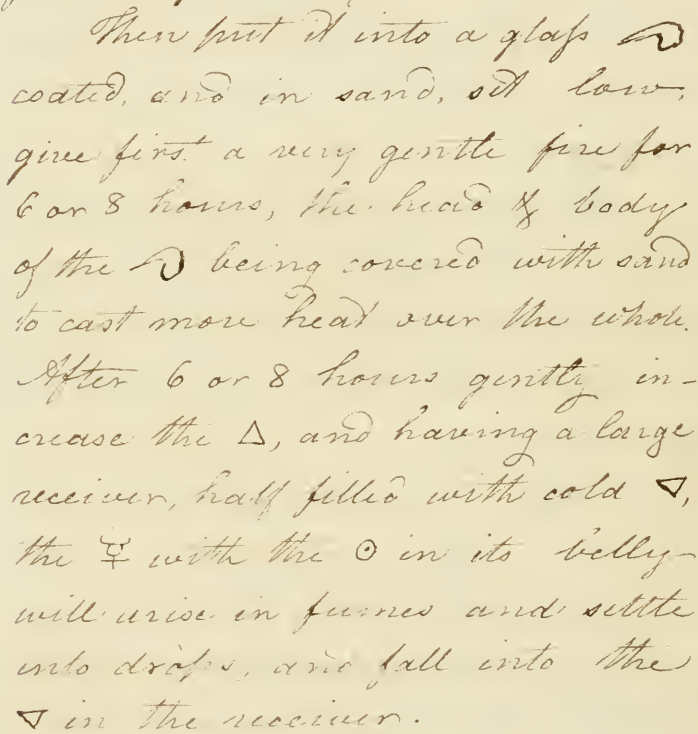 Then put it into a glass
coated, and in sand, set low,
give first a very gentle fire for
6 or 8 hours, the head & body
of the being covered with sand
to cast more heat over the whole.
After 6 or 8 hours gently in-
crease the 🜂, and having a large
receiver, half filled with cold 🜄,
the ☿ with the ☉ in its belly
will arise in fumes and settle
into drops, and fall into the
🜄 in the receiver.